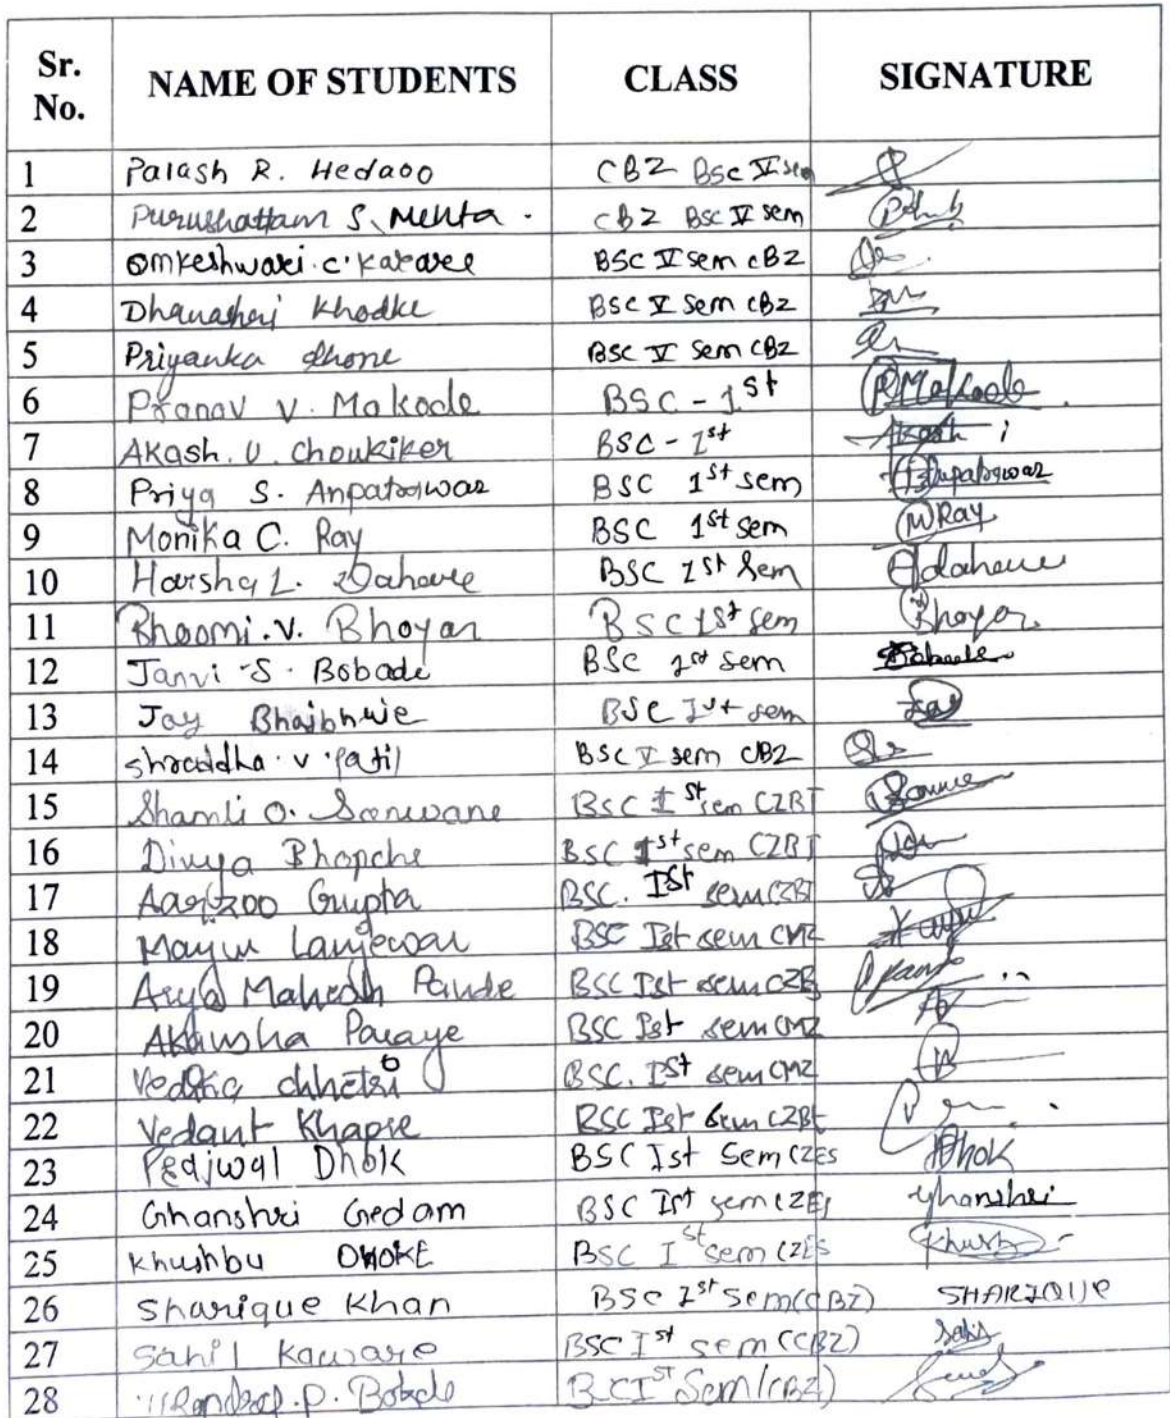 Sr. No. NAME OF STUDENTS CLASS SIGNATURE
1 Palash R. Hedaoo CBZ Bsc V sem
2 Purushattam S. Mehta. CBZ Bsc V sem
3 Omkeshwari.c.Katare BSC V sem CBZ
4 Dhanashri Khodke BSC V sem CBZ
5 Priyanka dhone BSC V sem CBZ
6 Pranav V. Makode BSC - 1st PMakode
7 AKash. U. Choukiker BSC - Ist Akash
8 Priya S. BSC 1st sem
9 Monika C. Ray BSC 1st sem MRay
10 Harsha L. Dahare BSC 1st sem
11 Bhoomi.V. Bhoyar BSC 1st sem Bhoyar
12 Janvi S. Bobade BSC 1st sem Bobade
13 Jay BSC Ist sem Jay
14 shraddha.v.patil BSC V sem CBZ
15 Shamli O. Sonwane BSC Ist sem CZBT
16 Divya Bhopche BSC 1st sem CZBT
17 Aarzoo Gupta BSC. Ist sem CZBT
18 Mayur Lanjewar BSC Ist sem CMZ
19 Arya Mahesh Pande BSC Ist sem CZB
20 Paraye BSC Ist sem CMZ
21 chhetri BSC. Ist sem CMZ
22 Vedant Khapre BSC Ist sem CZBt
23 Prajwal Dhok BSC Ist Sem CZES Dhok
24 Ghanshri Gedam BSC Ist sem CZES Ghanshri
25 Khushbu DHOKE BSC Ist sem CZES Khush
26 Sharique Khan BSC Ist Sem(CBZ) SHARIQUE
27 Sahil Kaware BSC Ist sem (CBZ)
28 P. BCIst Sem (CBZ)